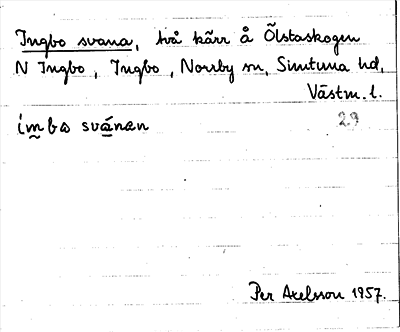 Ingbo svana, två kärr å Ölstaskogen
N Ingbo, Ingbo, Norrby sn, Simtuna hd,
Västm. l.
ímba svánan 29
Per Axelsson 1957.